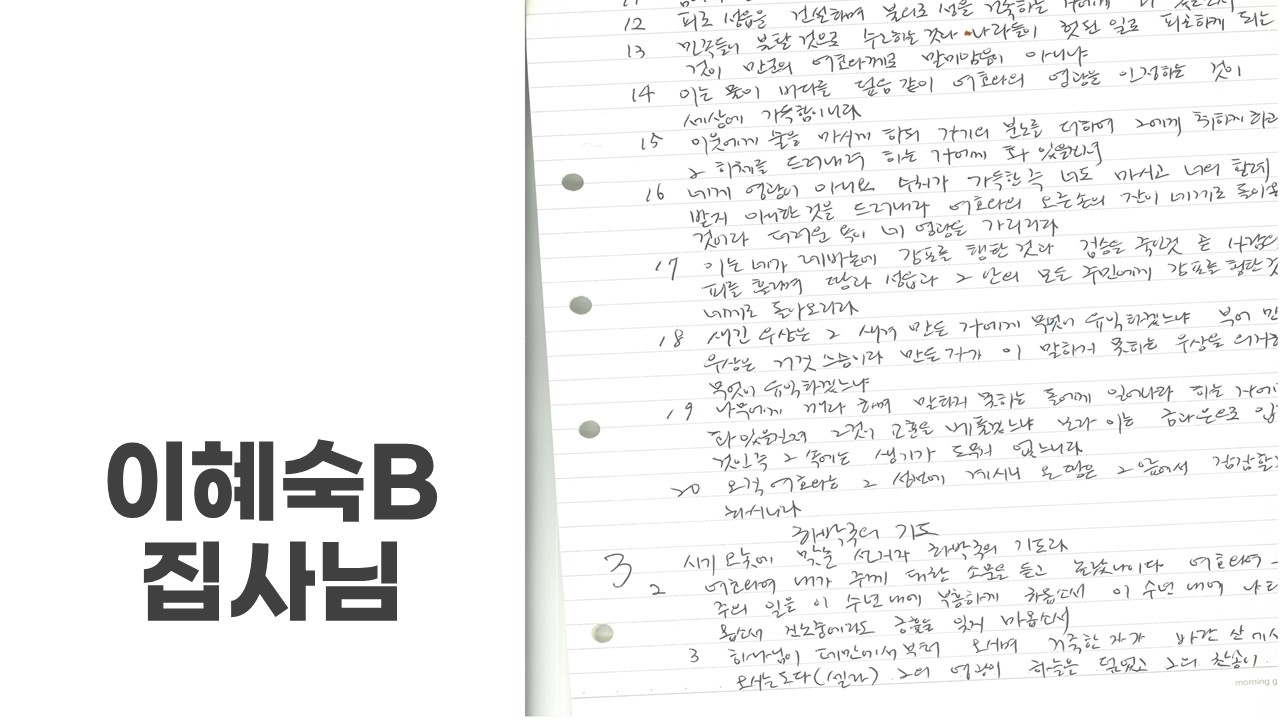 이혜숙B
집사님
12 피로 성읍을 건설하며 불의로 성을 건축하는
13 민족들이 불탈 것으로 수고하는 것과 나라들이 헛된 일로 피곤하게 되는
것이 만군의 여호와께로 말미암음이 아니냐
14 이는 물이 바다를 덮음 같이 여호와의 영광을 인정하는 것이
세상에 가득함이니라
15 이웃에게 술을 마시게 하되 자기의 분노를 더하여 그에게 취하게 하고
그 하체를 드러내려 하는 자에게 화 있을진저
16 네게 영광이 아니요 수치가 가득한즉 너도 마시고 너의 할례
받지 아니한 것을 드러내라 여호와의 오른손의 잔이 네게로 돌이올
것이라 더러운 욕이 네 영광을 가리리라
17 이는 네가 레바논에 강포를 행한 것과 짐승을 죽인것 곧 사람의
피를 흘리며 땅과 성읍과 그 안의 모든 주민에게 강포를 행한 것
네게로 돌아오리라
18 새긴 우상은 그 새겨 만든 자에게 무엇이 유익하겠느냐 부어 만
우상은 거짓 스승이라 만든 자가 이 말하지 못하는 우상을 의지하
무엇이 유익하겠느냐
19 나무에게 깨라 하며 말하지 못하는 돌에게 일어나라 하는 자에게
화 있을진저 그것이 교훈을 베풀겠느냐 보라 이는 금과 은으로 입
것인즉 그 속에는 생기가 도무지 없느니라
20 오직 여호와는 그 성전에 계시니 온 땅은 그 앞에서 잠잠할
하시니라
하박국의 기도
3 시기오놋에 맞춘 선지자 하박국의 기도라
2 여호와여 내가 주께 대한 소문을 듣고 놀랐나이다 여호와여
주의 일을 이 수년 내에 부흥하게 하옵소서 이 수년 내에 나타
옵소서 진노중에라도 긍휼을 잊지 마옵소서
3 하나님이 데만에서부터 오시며 거룩한 자가 바란 산에서
오시는도다(셀라) 그의 영광이 하늘을 덮었고 그의 찬송이
morning g